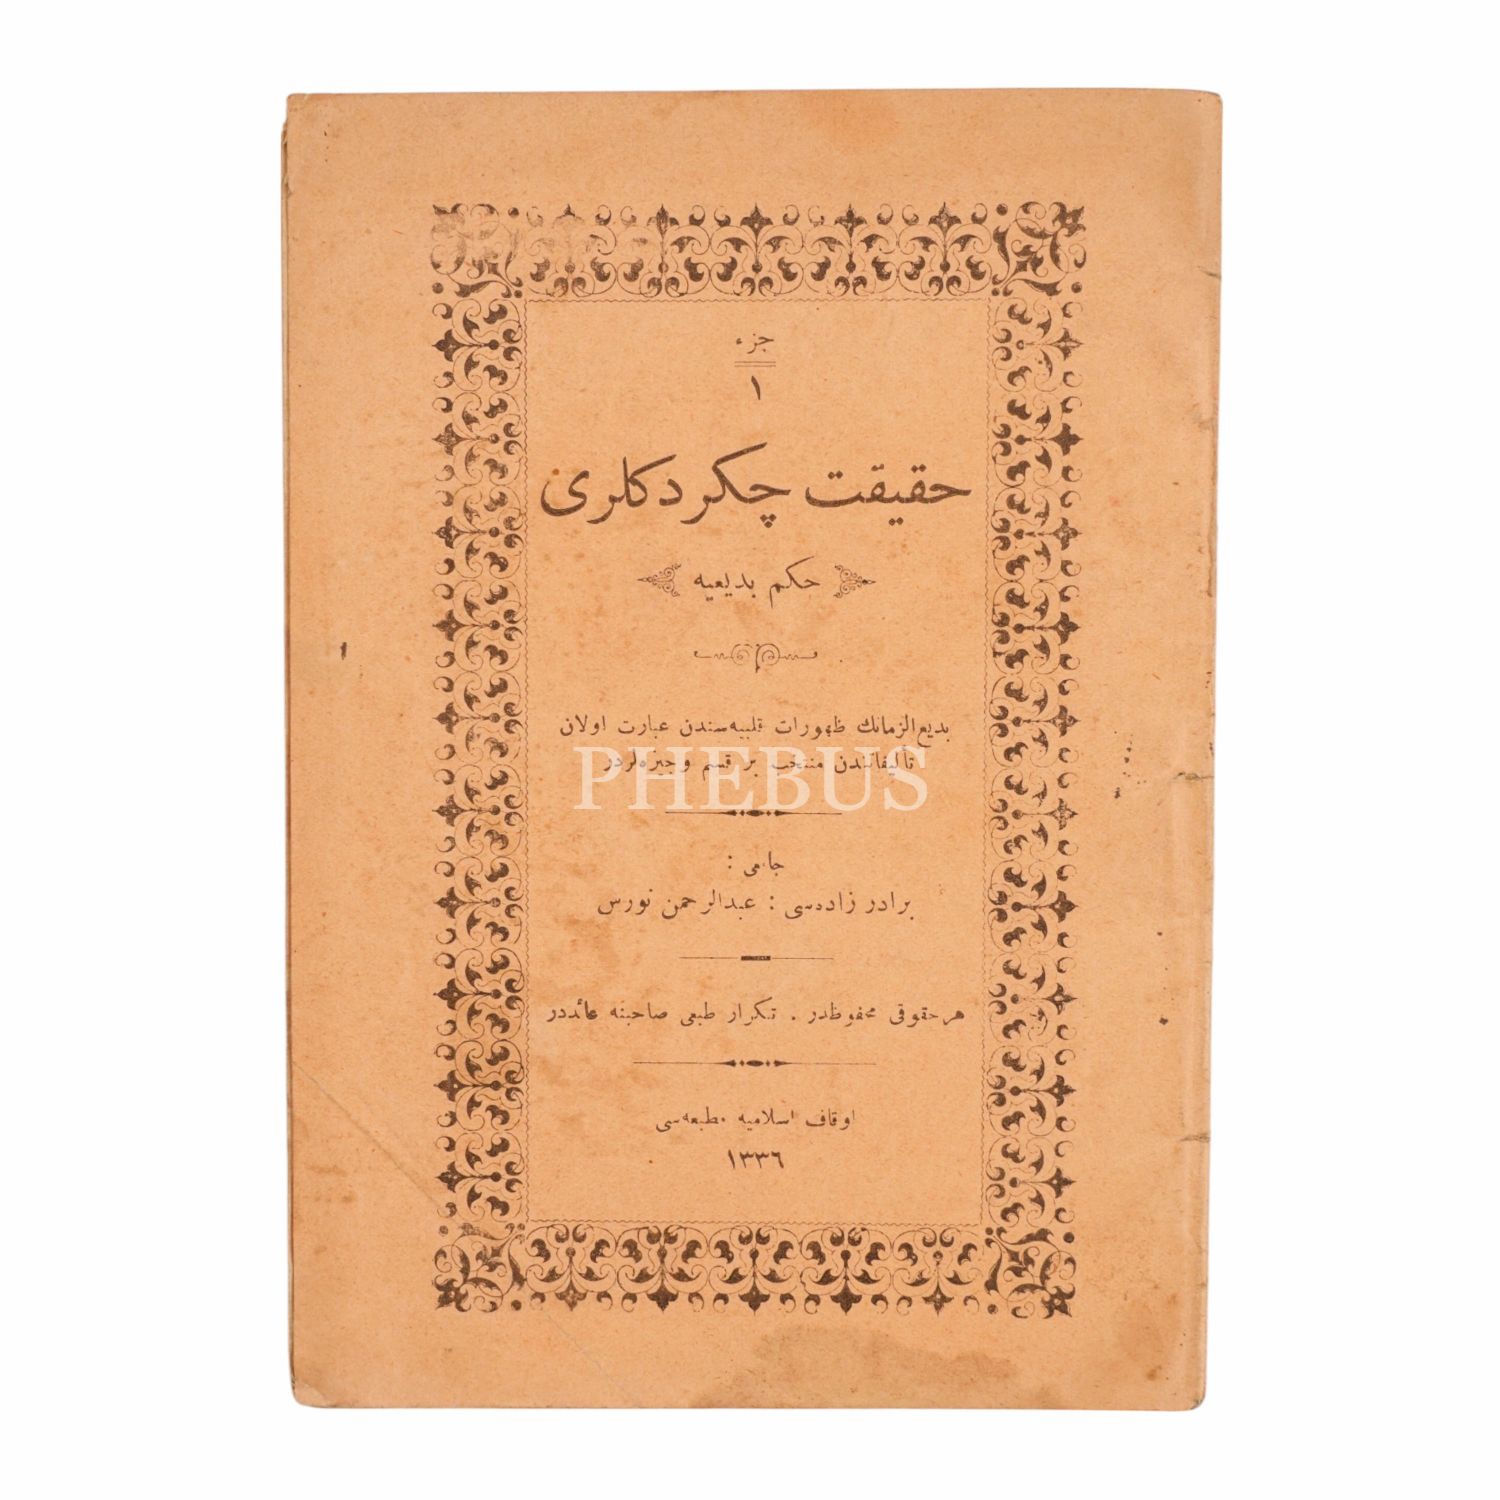 جزء
١
حقيقت چكردكلرى
حكم بديعيه
بديع الزمانك ظهورات قلبيه‌سندن عبارت اولان
تأليفاتندن منتخب بر قسم وجيزه‌لردر
PHEBUS
جامعى :
برادر زاده‌سى : عبدالرحمن نورس
هر حقوقى محفوظدر . تكرار طبعى صاحبنه عائددر
اوقاف اسلاميه مطبعه‌سى
١٣٣٦